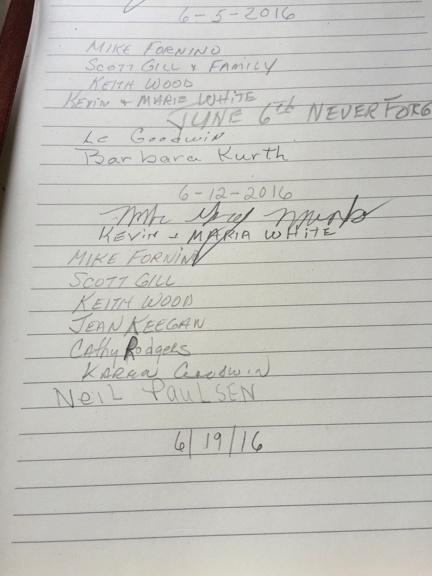 6-5-2016
MIKE FORNINO
SCOTT GILL & FAMILY
KEITH WOOD
KEVIN & MARIE WHITE
JUNE 6th NEVER FORG
Le Goodwin
Barbara Kurth
6-12-2016
KEVIN & MARIA WHITE
MIKE FORNINO
SCOTT GILL
KEITH WOOD
JEAN KEEGAN
Cathy Rodgers
KAREN Goodwin
Neil PAULSEN
6/19/16